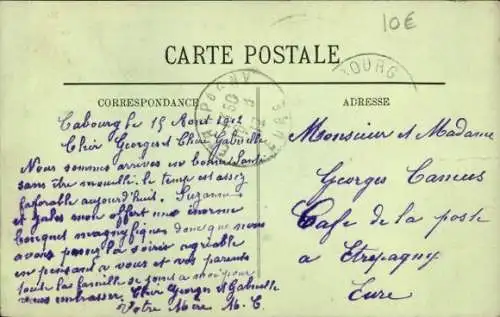 10€
CARTE POSTALE
CORRESPONDANCE
ADRESSE
OURG
EURE
Cabourg le 15 Aout 1912
Cher Georges et Cher Gabrielle
Nous sommes arrives en bonne Santé
sans être mouillé. le temps est assez
faforable aujourd'huit. Suzanne
et Jules mon offert une énorme
bouquet magnifiques donc que nous
avons passez la soiré agréable
en pensant a vous et vos parents
toute la famille se joint a moi pour
vous embrasser. Cher Georges et Gabrielle
Votre Mère M. C.
Monsieur et Madame
Georges Camus
Cafe de la poste
a Etrepagny
Eure